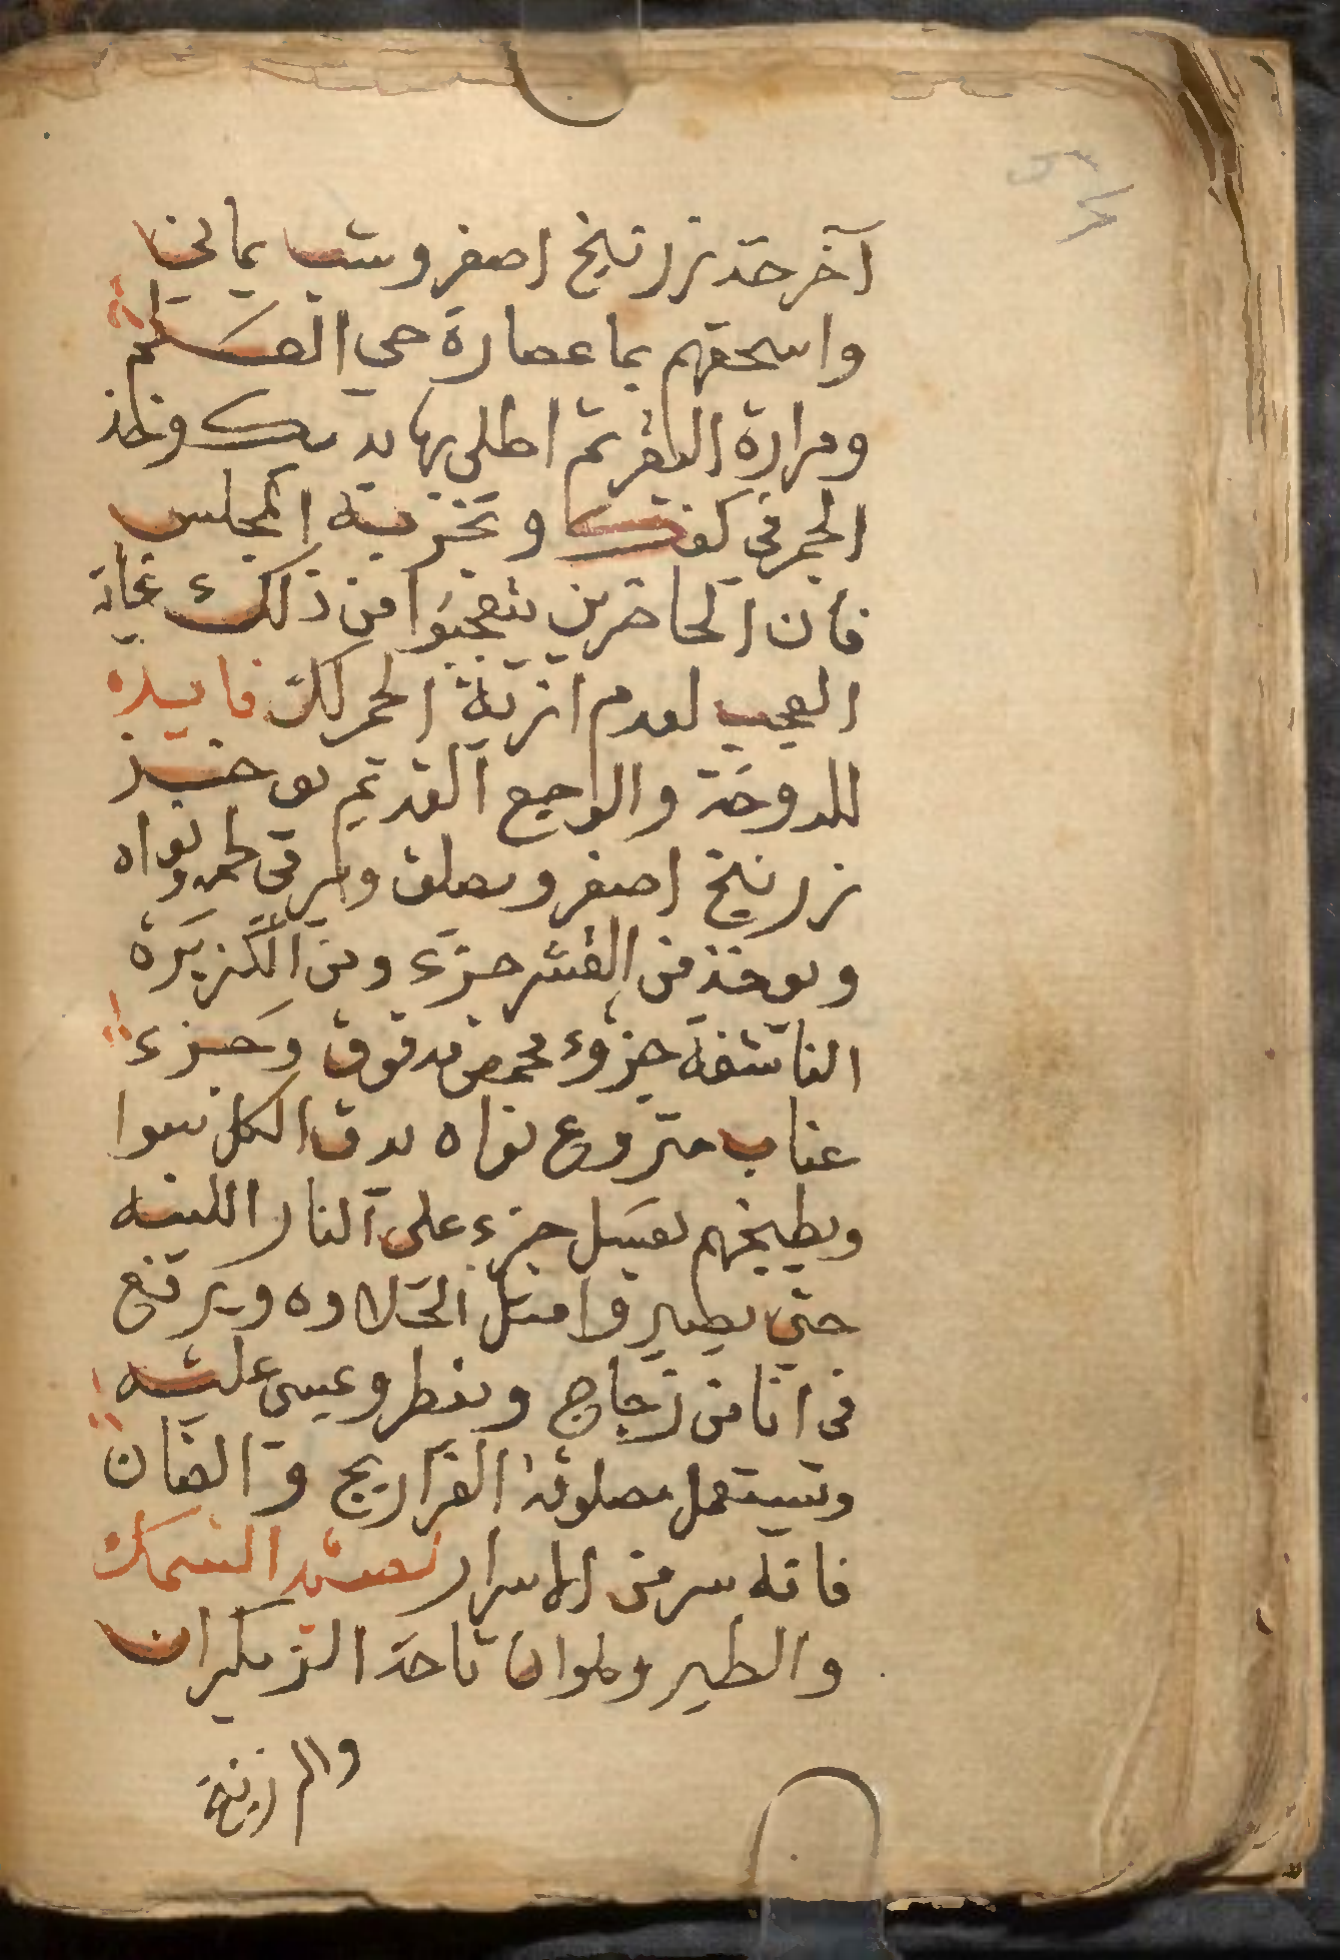 آخر خد زرنيخ اصفر وشب يماني
واسحقهم بما عصارة حي العالم
ومرارة البقر ثم اطلي بها يديك وخذ
الجمر في كفك وتخرج به المجلس
فان الحاضرين يتعجبوا من ذلك غاية
العجب لعدم اذية الجمر لك فايده
للدوخة والوجع القديم يوخذ
زرنيخ اصفر ويصلق ويرمى نواه
ويوخذ من القشر جزء ومن الكزبرة
الناشفة جزء محمص مدقوق وجزء
عناب منزوع نواه يدق الكل سوا
ويطبخهم بعسل جزء على النار اللينه
حتى يصير قوامثل الحلاوه ويرفع
في انا من زجاج ويفطر ويمسى عليه
وتستعمل مصلوقة الفراريج والضان
فانه سر من الاسرار لصيد السمك
والطير ولهوان تاخذ الزيكران
والرزنة